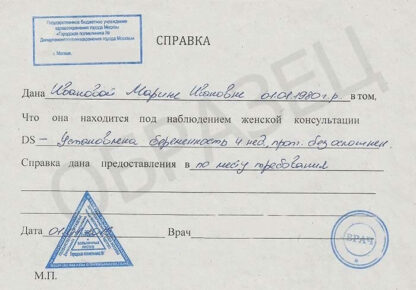 Государственное бюджетное учреждение
здравоохранения города Москвы
«Городская поликлиника №
Департамента здравоохранения города Москвы»
г. Москва
СПРАВКА
Дана Ивановой Марине Ивановне 01.01.1980 г.р. в том.
Что она находится под наблюдением женской консультации
DS – Установлена беременность 4 нед, прот. без осложнен.
Справка дана предоставления в по месту требования
ОБРАЗЕЦ
Дата 01. Врач
ВРАЧ
М.П.